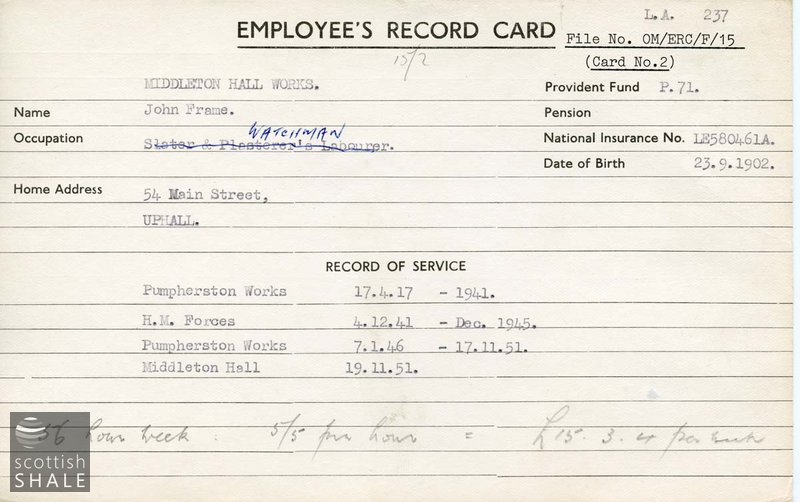 L.A. 237
EMPLOYEE'S RECORD CARD
File No. OM/ERC/F/15
15/2
(Card No.2)
MIDDLETON HALL WORKS.
Provident Fund P.71.
Name John Frame.
Pension
WATCHMAN
Occupation Slater & Plasterer's Labourer.
National Insurance No. LE580461A.
Date of Birth 23.9.1902.
Home Address 54 Main Street,
UPHALL.
RECORD OF SERVICE
Pumpherston Works 17.4.17 - 1941.
H.M. Forces 4.12.41 - Dec. 1945.
Pumpherston Works 7.1.46 - 17.11.51.
Middleton Hall 19.11.51.
56 hour week : 5/5 per hour = £15. 3. 4 per week
scottish
SHALE